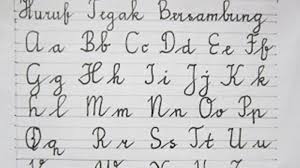 Huruf Tegak Bersambung
Aa Bb Cc Dd Ee Ff
Gg Hh Ii Jj Kk
Ll Mm Nn Oo Pp
Qq Rr Ss Tt Uu